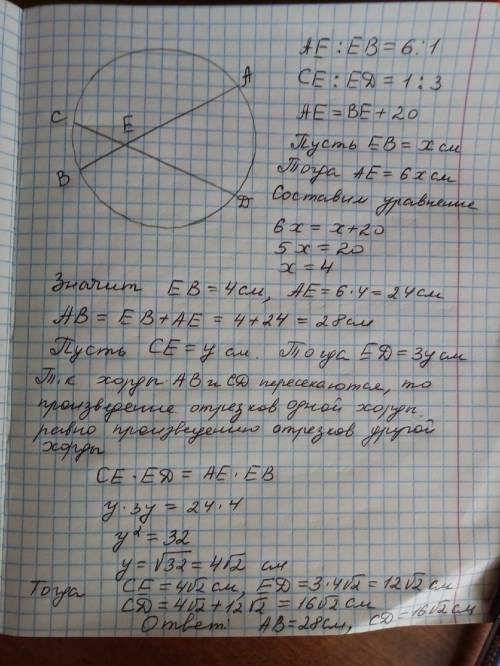 A
C
E
B
D
AE : EB = 6 : 1
CE : ED = 1 : 3
AE = BE + 20
Пусть EB = x см
Тогда AE = 6x см
Составим уравнение
6x = x + 20
5x = 20
x = 4
Значит EB = 4 см, AE = 6·4 = 24 см
AB = EB + AE = 4 + 24 = 28 см
Пусть CE = y см. Тогда ED = 3y см
Т.к хорды AB и CD пересекаются, то
произведение отрезков одной хорды
равно произведению отрезков другой
хорды
CE · ED = AE · EB
y · 3y = 24 · 4
y² = 32
y = √32 = 4√2 см
Тогда CE = 4√2 см, ED = 3·4√2 = 12√2 см
CD = 4√2 + 12√2 = 16√2 см
Ответ: AB = 28 см, CD = 16√2 см